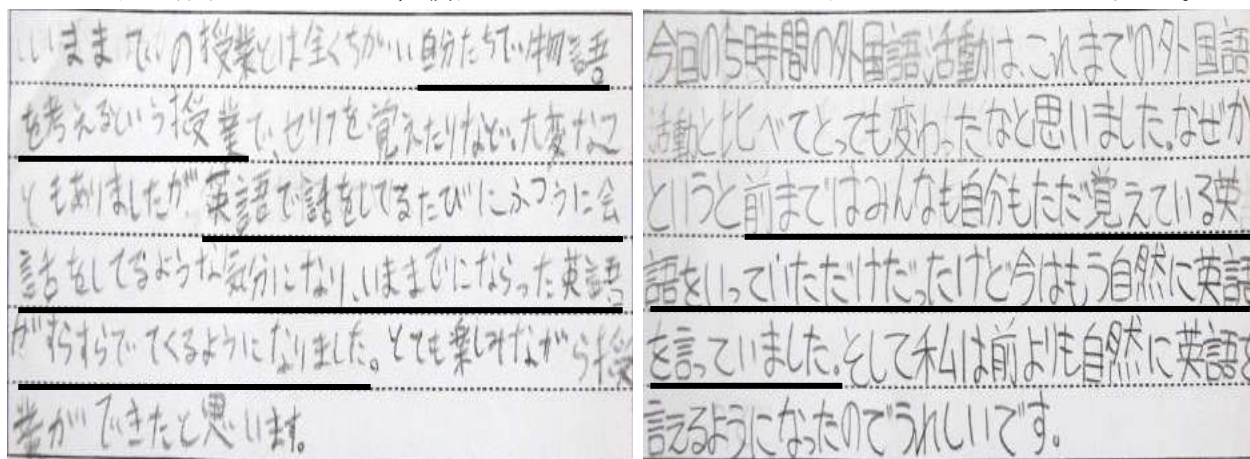 いままでの授業とは全くちがい自分たちで物語
を考えるという授業で、セリフを覚えたりなど、大変なこ
ともありましたが、英語で話をしてるたびにふつうに会
話をしてるような気分になり、いままでにならった英語
がすらすらでてくるようになりました。とても楽しみながら授
業ができたと思います。
今回の5時間の外国語活動は、これまでの外国語
活動と比べてとっても変わったなと思いました。なぜか
というと前まではみんなも自分もただ覚えている英
語をいっていただけだったけど今はもう自然に英語
を言っていました。そして私は前よりも自然に英語で
言えるようになったのでうれしいです。